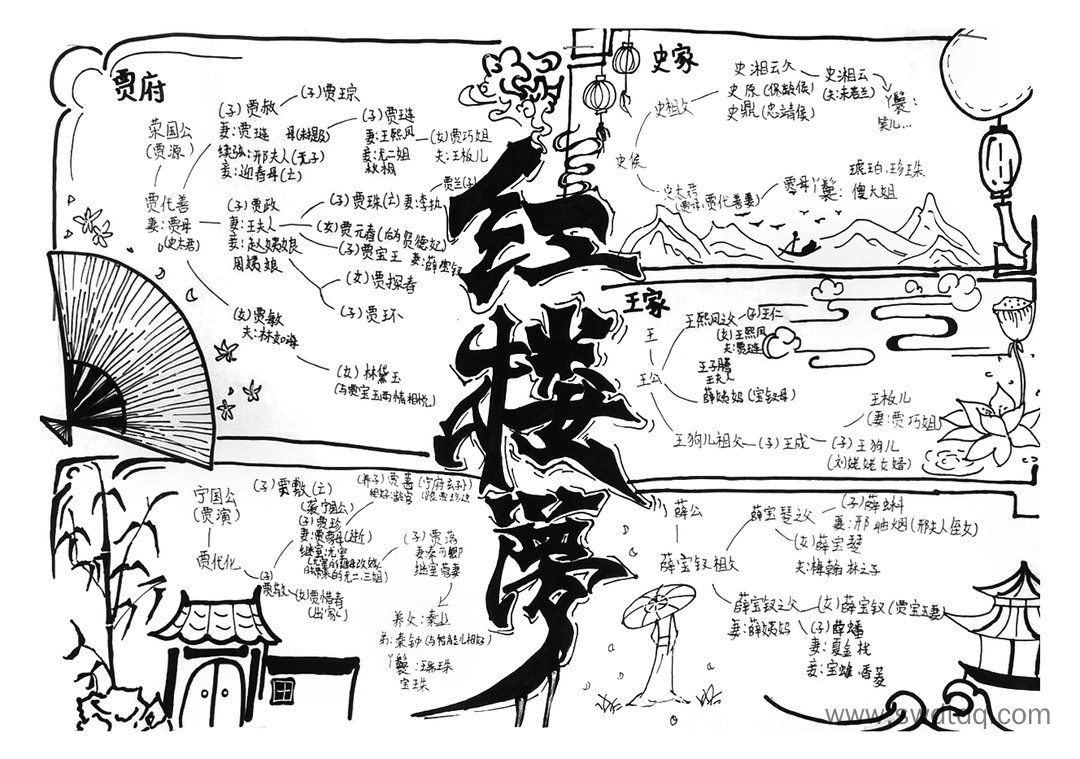 贾府
荣国公
(贾源)
贾代善
妻:贾母
(史太君)
(子)贾赦
妻:贾琏 母(未提及)
续弦:邢夫人(无子)
妾:迎春母(亡)
(子)贾琮
(子)贾琏
妻:王熙凤
妾:尤二姐
秋桐
(女)贾巧姐
夫:王板儿
(子)贾政
妻:王夫人
妾:赵姨娘
周姨娘
(子)贾珠(亡)妻:李纨
贾兰(子)
(女)贾元春(后为贤德妃)
(子)贾宝玉 妻:薛宝钗
(女)贾探春
(子)贾环
(女)贾敏
夫:林如海
(女)林黛玉
(与贾宝玉两情相悦)
红楼梦
史家
史侯
史祖父
史湘云父
史原(保龄侯)
史鼎(忠靖侯)
史湘云
丫鬟:
笑儿...
史太君
(贾母,贾代善妻)
贾母丫鬟:
琥珀.珍珠
傻大姐
王家
王
王公
王熙凤父
(子)王仁
(女)王熙凤
夫:贾琏
王子腾
王夫人
薛姨妈(宝钗母)
王狗儿祖父
(子)王成
(子)王狗儿
(刘姥姥女婿)
王板儿
(妻:贾巧姐)
宁国公
(贾演)
贾代化
(子)贾敷(亡)
(子)
贾敬
(袭宁国公)
(子)贾珍
继室:尤氏
(女)贾惜春
(出家)
(养子)贾蔷(宁府玄孙)
相好:龄官
(子)贾蓉
妻秦可卿
继室
养父:秦业
弟:秦钟
丫鬟:瑞珠
宝珠
薛公
薛宝钗祖父
薛宝琴父
(子)薛蝌
妻:邢岫烟(邢夫人侄女)
(女)薛宝琴
夫:梅翰林之子
薛宝钗之父
妻:薛姨妈
(女)薛宝钗(贾宝玉妻)
(子)薛蟠
妻:夏金桂
妾:宝蟾·香菱
www.swdtdq.com